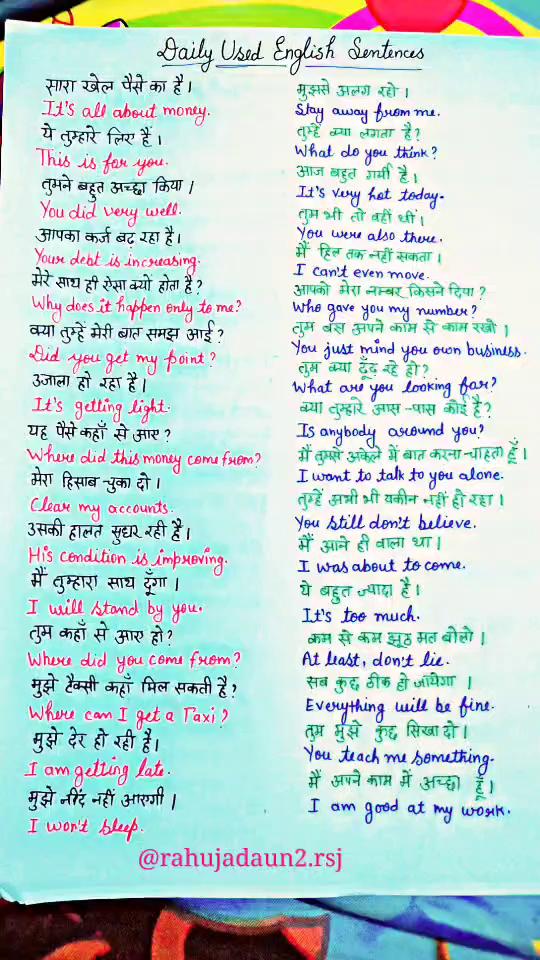 Daily Used English Sentences
सारा खेल पैसे का है।
It's all about money.
ये तुम्हारे लिए हैं।
This is for you.
तुमने बहुत अच्छा किया।
You did very well.
आपका कर्ज बढ़ रहा है।
Your debt is increasing.
मेरे साथ ही ऐसा क्यों होता है?
Why does it happen only to me?
क्या तुम्हें मेरी बात समझ आई?
Did you get my point?
उजाला हो रहा है।
It's getting light.
यह पैसे कहाँ से आए?
Where did this money come from?
मेरा हिसाब चुका दो।
Clear my accounts.
उसकी हालत सुधर रही है।
His condition is improving.
मैं तुम्हारा साथ दूँगा।
I will stand by you.
तुम कहाँ से आए हो?
Where did you come from?
मुझे टैक्सी कहाँ मिल सकती है?
Where can I get a Taxi?
मुझे देर हो रही है।
I am getting late.
मुझे नींद नहीं आएगी।
I won't sleep.
मुझसे अलग रहो।
Stay away from me.
तुम्हें क्या लगता है?
What do you think?
आज बहुत गर्मी है।
It's very hot today.
तुम भी तो वहीं थीं।
You were also there.
मैं हिल तक नहीं सकता।
I can't even move.
आपको मेरा नम्बर किसने दिया?
Who gave you my number?
तुम बस अपने काम से काम रखो।
You just mind you own business.
तुम क्या ढूँढ रहे हो?
What are you looking far?
क्या तुम्हारे आस-पास कोई है?
Is anybody around you?
मैं तुमसे अकेले में बात करना चाहता हूँ।
I want to talk to you alone.
तुम्हें अभी भी यकीन नहीं हो रहा।
You still don't believe.
मैं आने ही वाला था।
I was about to come.
ये बहुत ज्यादा है।
It's too much.
कम से कम झूठ मत बोलो।
At least, don't lie.
सब कुछ ठीक हो जायेगा।
Everything will be fine.
तुम मुझे कुछ सिखा दो।
You teach me something.
मैं अपने काम में अच्छा हूँ।
I am good at my work.
@rahujadaun2.rsj